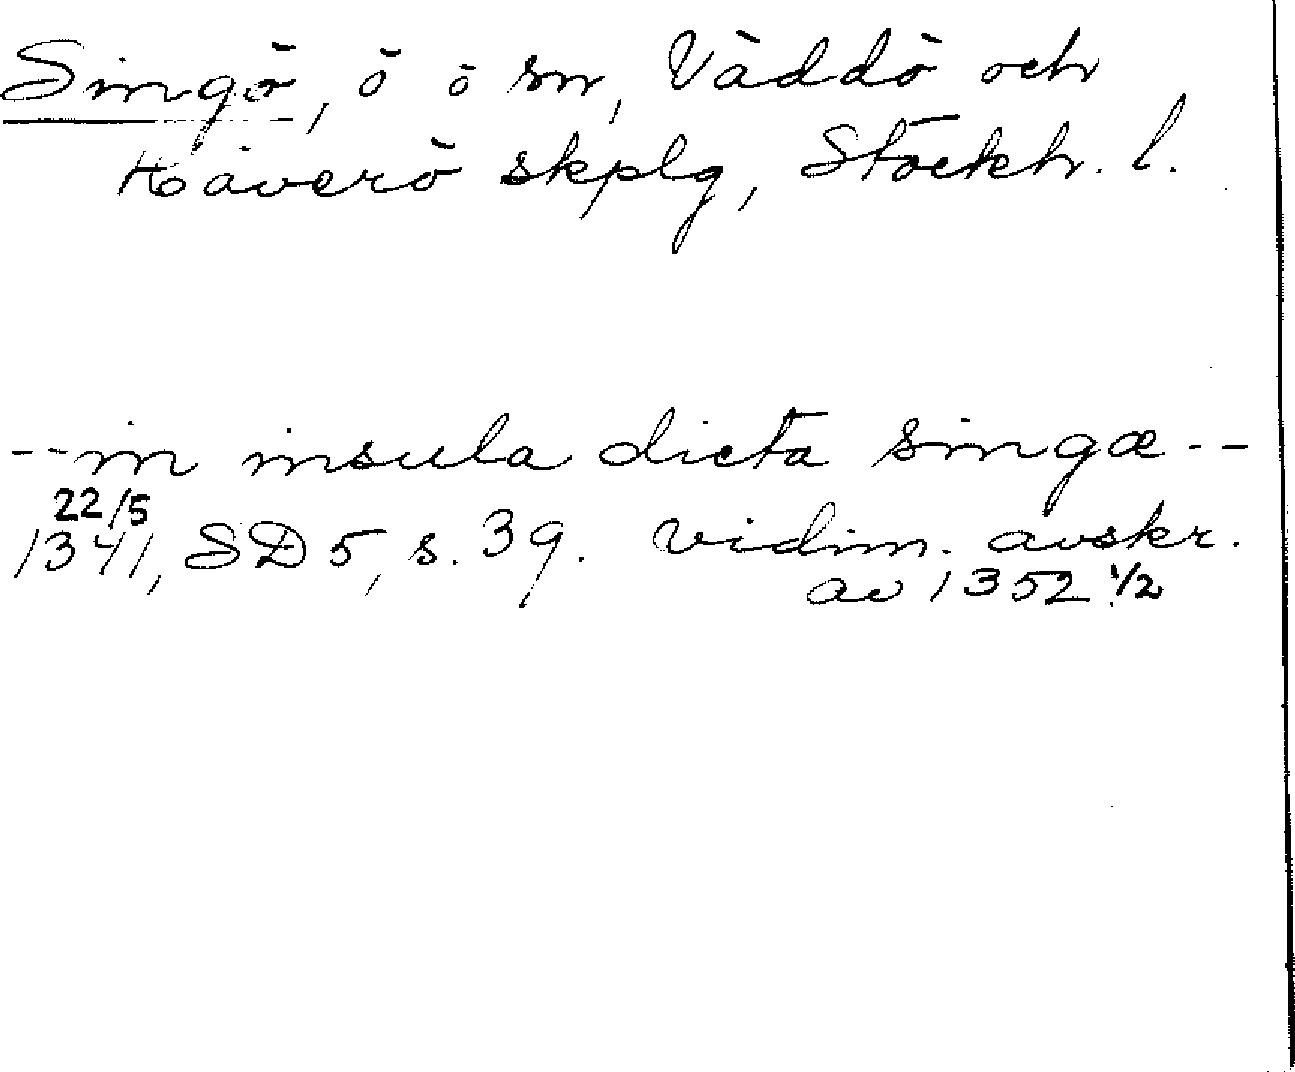 Singö, ö ö sn, Väddö och
Häverö skplg, Stockh. l.
-- in insula dicta singæ --
22/5
1341, SD 5, s. 39. vidim. avskr.
av 1352 1/2